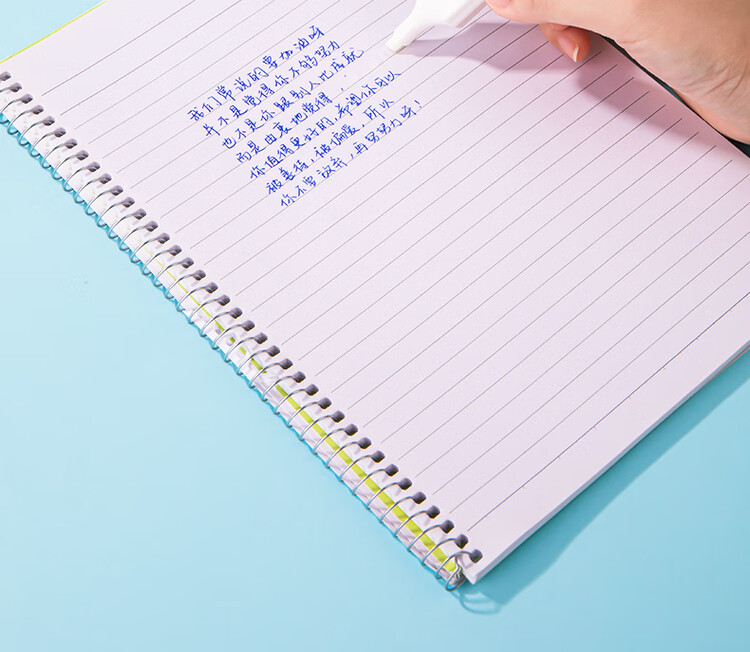 我们常说的要加油呀
并不是觉得你不够努力
也不是你跟别人比成就
而是由衷地觉得,
你值得更好的,希望你可以
被善待,被偏爱,所以
你不要放弃,再努努力呀!